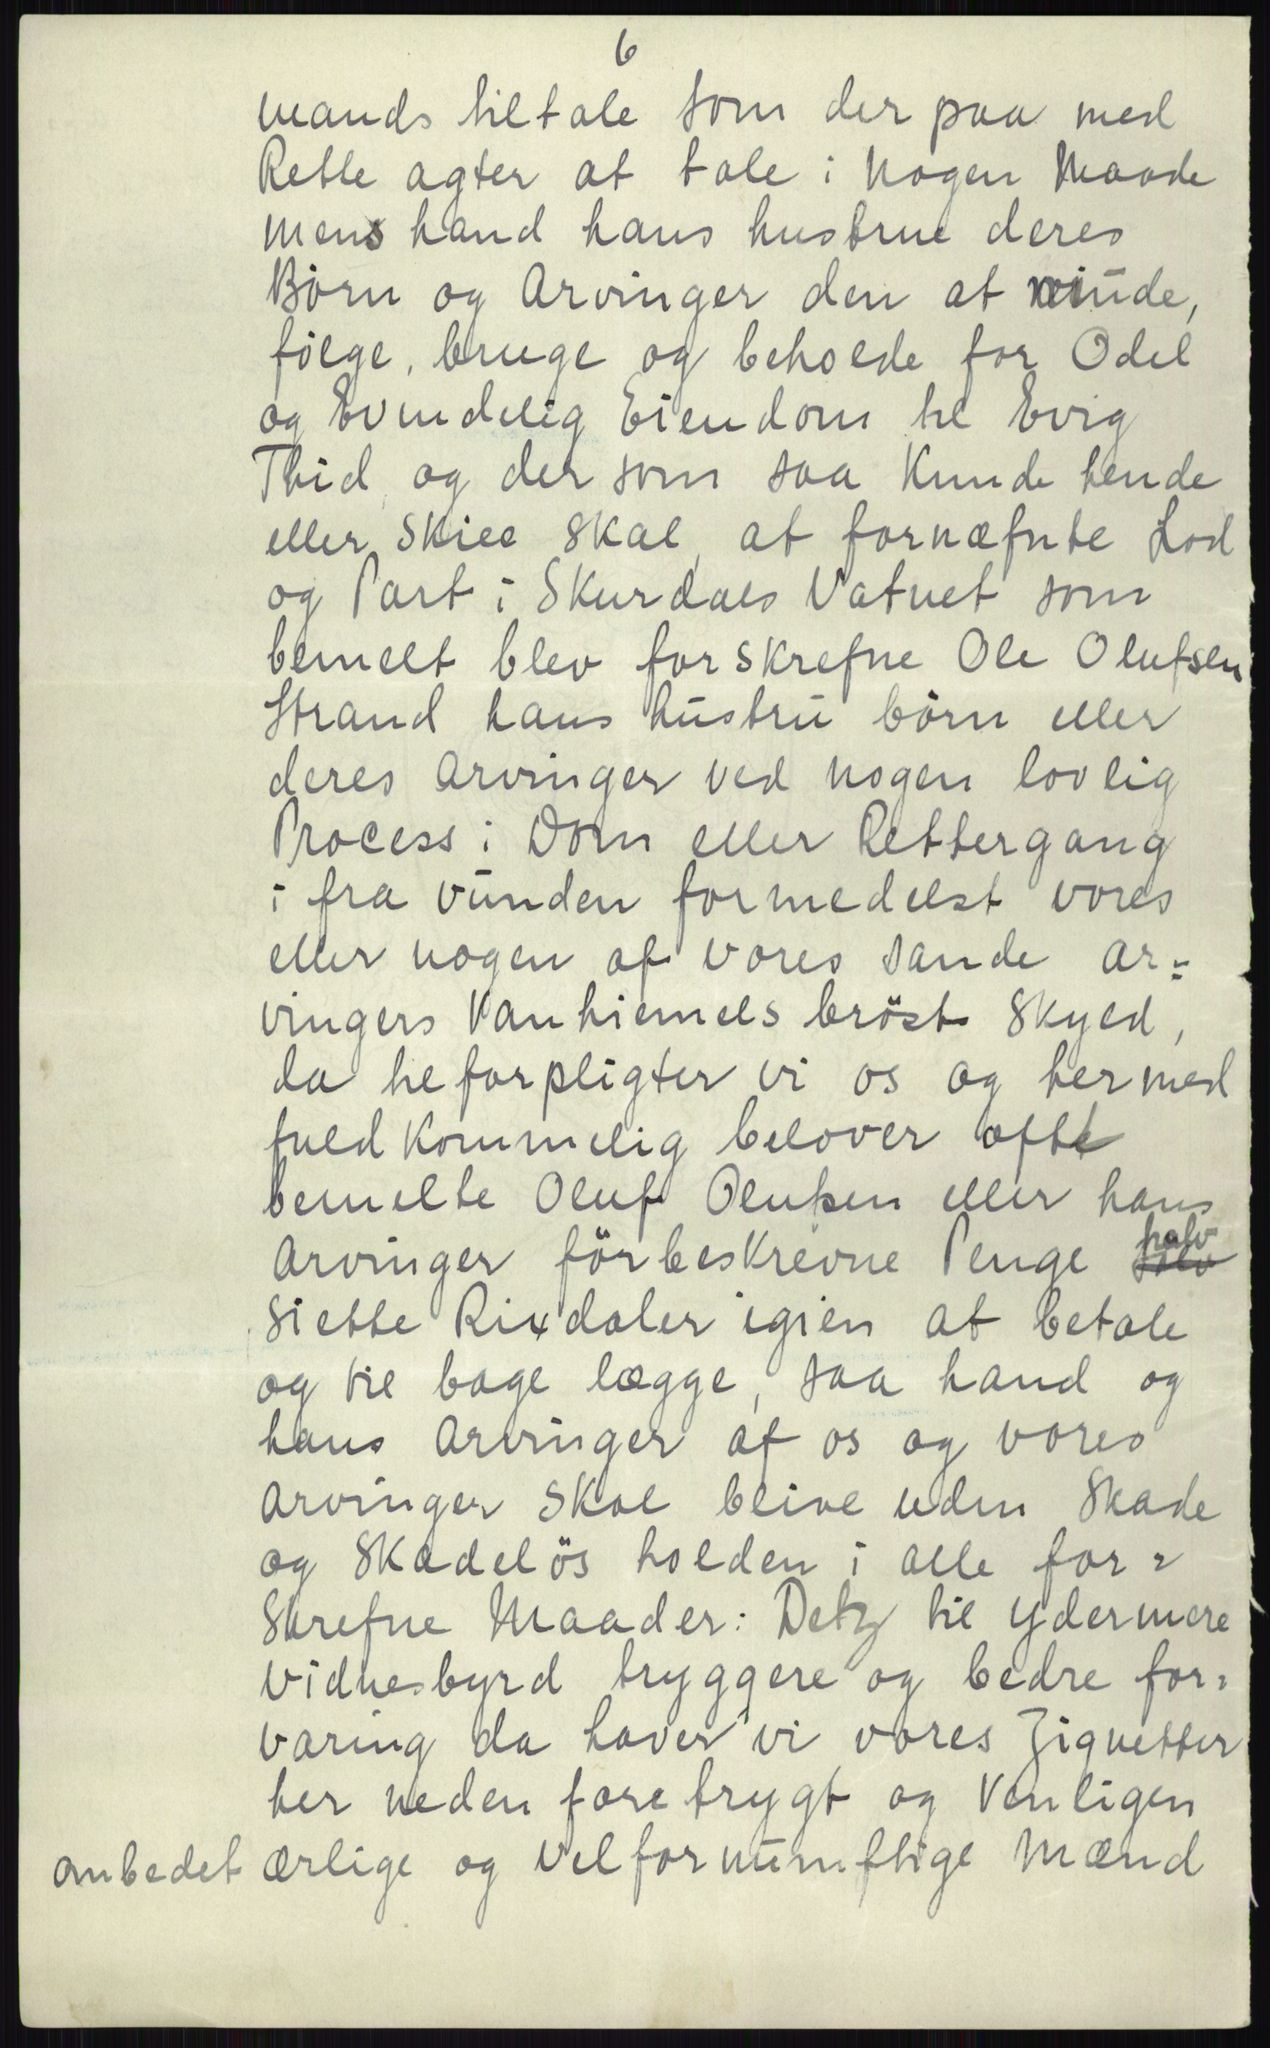 6
mands tiltale som der paa med
Rette agter at tale i Nogen Maade
mens hand hans hustrue deres
Börn og Arvinger den at niude,
fölge, bruge og beholde for Odel
og Evindelig Eiendom til Evig
Thid, og der som saa Kunde hende
eller Skiee Skal, at fornæfnte Lod
og Part i Skurdals Vatnet som
bemelt blev forskrefne Ole Olufsen
Strand hans hustru börn eller
deres Arvinger ved nogen lovlig
Process i Dom eller Rettergang
i fra vunden formedelst vores
eller nogen af vores sande Ar=
vingers Vanhiemels bröst Skyld,
da tilforpligter vi os og hermed
fuldkommelig belover ofte
bemelte Oluf Olufsen eller hans
Arvinger förbeskrevne Penge halv
Siette Rixdaler igien at betale
og til bage lægge, saa hand og
hans Arvinger af os og vores
Arvinger Skal blive uden Skade
og Skadelös holden i alle for=
Skrefne Maader: Detz til ydermere
Vidnesbyrd tryggere og bedre for=
varing da haver vi vores Zignetter
her neden fore trygt og Venligen
ombedet ærlige og velfornumftige Mænd